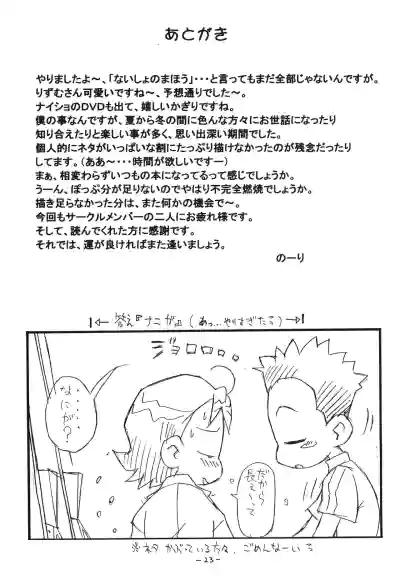 あとがき
やりましたよ～、「ないしょのまほう」・・・と言ってもまだ全部じゃないんですが。
りずむさん可愛いですね～、予想通りでした～。
ナイショのDVDも出て、嬉しいかぎりですね。
僕の事なんですが、夏から冬の間に色んな方々にお世話になったり
知り合えたりと楽しい事が多く、思い出深い期間でした。
個人的にネタがいっぱいな割にたっぷり描けなかったのが残念だったり
してます。（ああ～・・・時間が欲しいですー）
まぁ、相変わらずいつもの本になってるって感じでしょうか。
うーん、ぽっぷ分が足りないのでやはり不完全燃焼でしょうか。
描き足らなかった分は、また何かの機会で～。
今回もサークルメンバーの二人にお疲れ様です。
そして、読んでくれた方に感謝です。
それでは、運が良ければまた逢いましょう。
のーり
(あっ…やりすぎたっ)
ジョロロロ
なにが？
だから
長ぇーって
※ネタかぶっている方々、ごめんなーいっ
-23-